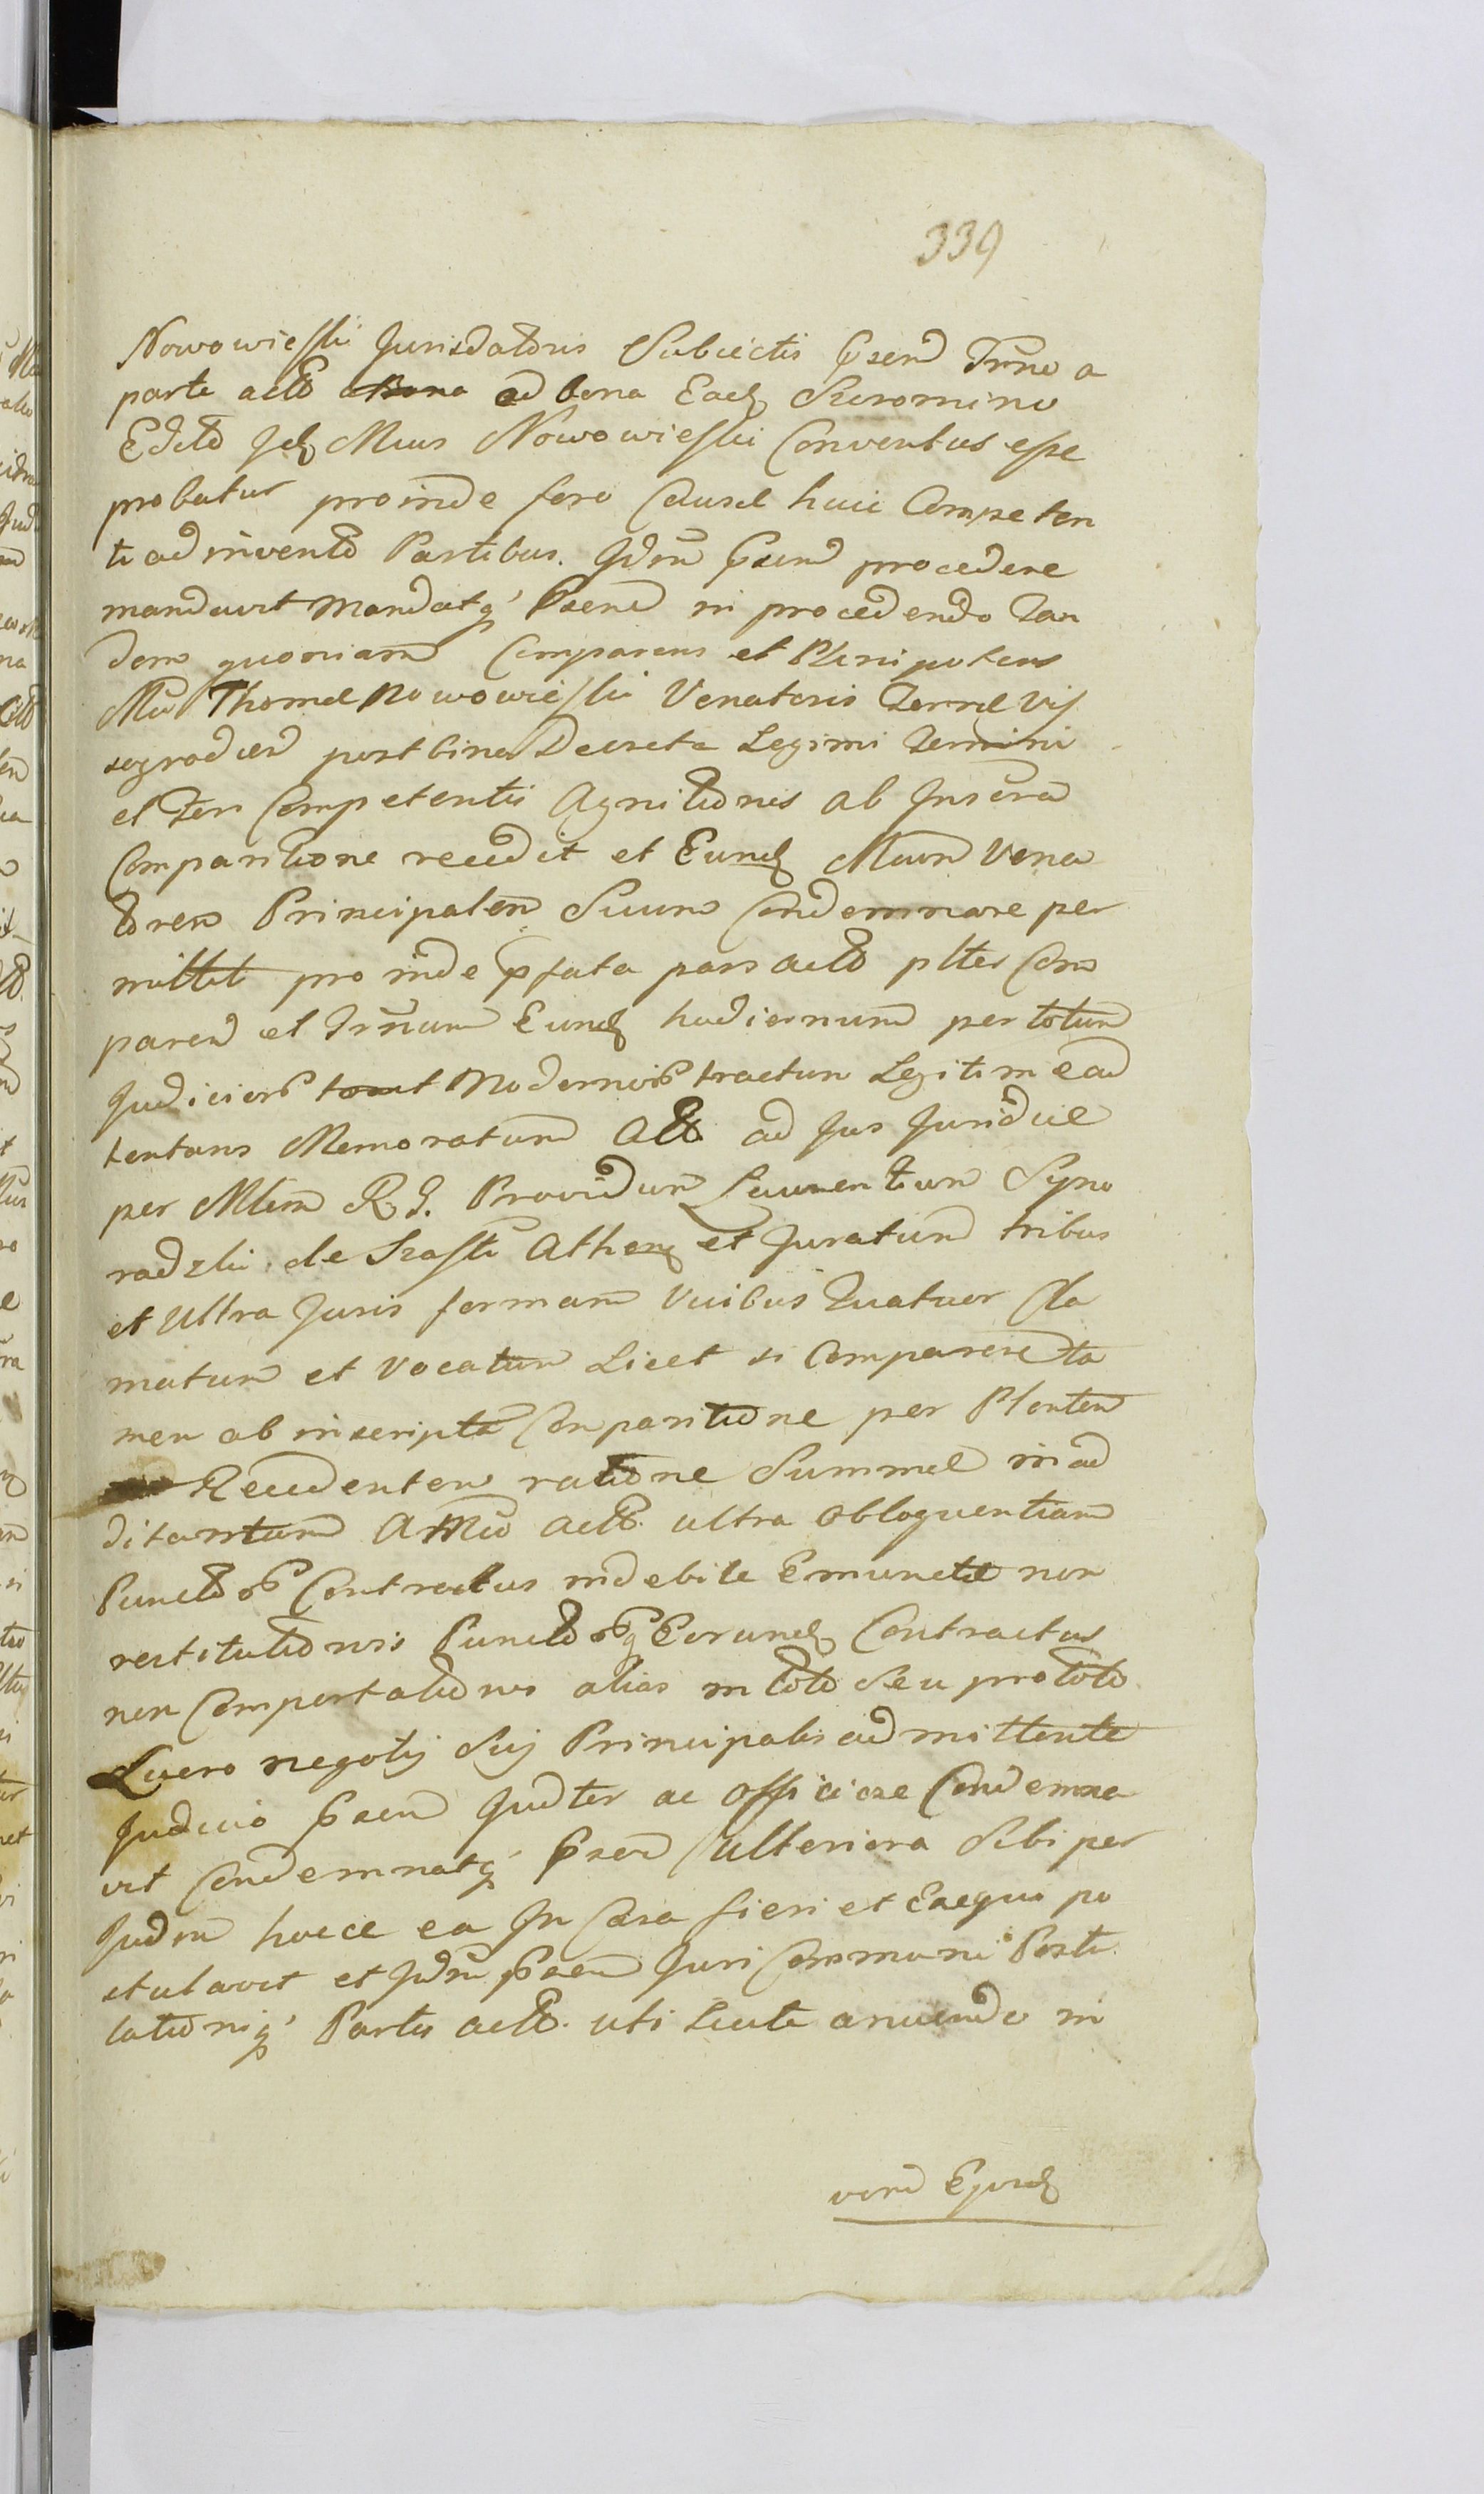 339
Nowowieſki Jurisdatoris Subiectis Prsend Trmo a
parte acto ad bona Eadq Skromino
Edito Jdq Mcus Nowowieſki Conventus eſse
probatur proinde foro Causæ huic Competen
ti adinvento Partibus. Jdm Prsend procedere
mandavit mandatq' Prsend in procedendo Tan
dem quoniam Comparens et Plenipotens
Mci Thomæ Nowowieſki Venatoris Terræ Viſ
segrodien post bina Decreta Legimi Termini
et Fori Competentis Agnitionis ab Inscra
Comparitione recedit et Eundq Mcum Vena
torem Principalem Suum Condemnare per
mittit proinde pfata pars acto plter Com
parend et Trmum Eundq hodiernum per totum
Judicior modernor tractum Legitime ad
tentans Memoratum Act ad Jus Juridice
per Mlem R. J. Providum Laurentium Syno
radzki de Szaſki Athenq et Juratum tribus
et Ultra Juris formam Vicibus Quatuor Cla
matum et Vocatum Licet si Comparere ta
men ab inscripta Comparitione per Plentem
Recedentem ratione Summæ in ad
ditamentum A Mco acto. ultra obloquentiam
Punctor Contractus indebite Emunctæ non
restitutionis Punctorq Eorundq Contractus
non Comportationis alias in toto seu pro toto
Lucro negotij Sui Principalis admittente
Judicio Prsend Judter ac officiose Condemna
vit Condemnatq' Prsend Ulteriora Sibi per
Judm hocce ea In Casa fieri et Exequi po
stulavit et Jdm Prsend Juri Communi Postu
lationiq' Partis acto. uti Juste anuendo in
vim Ejusdq